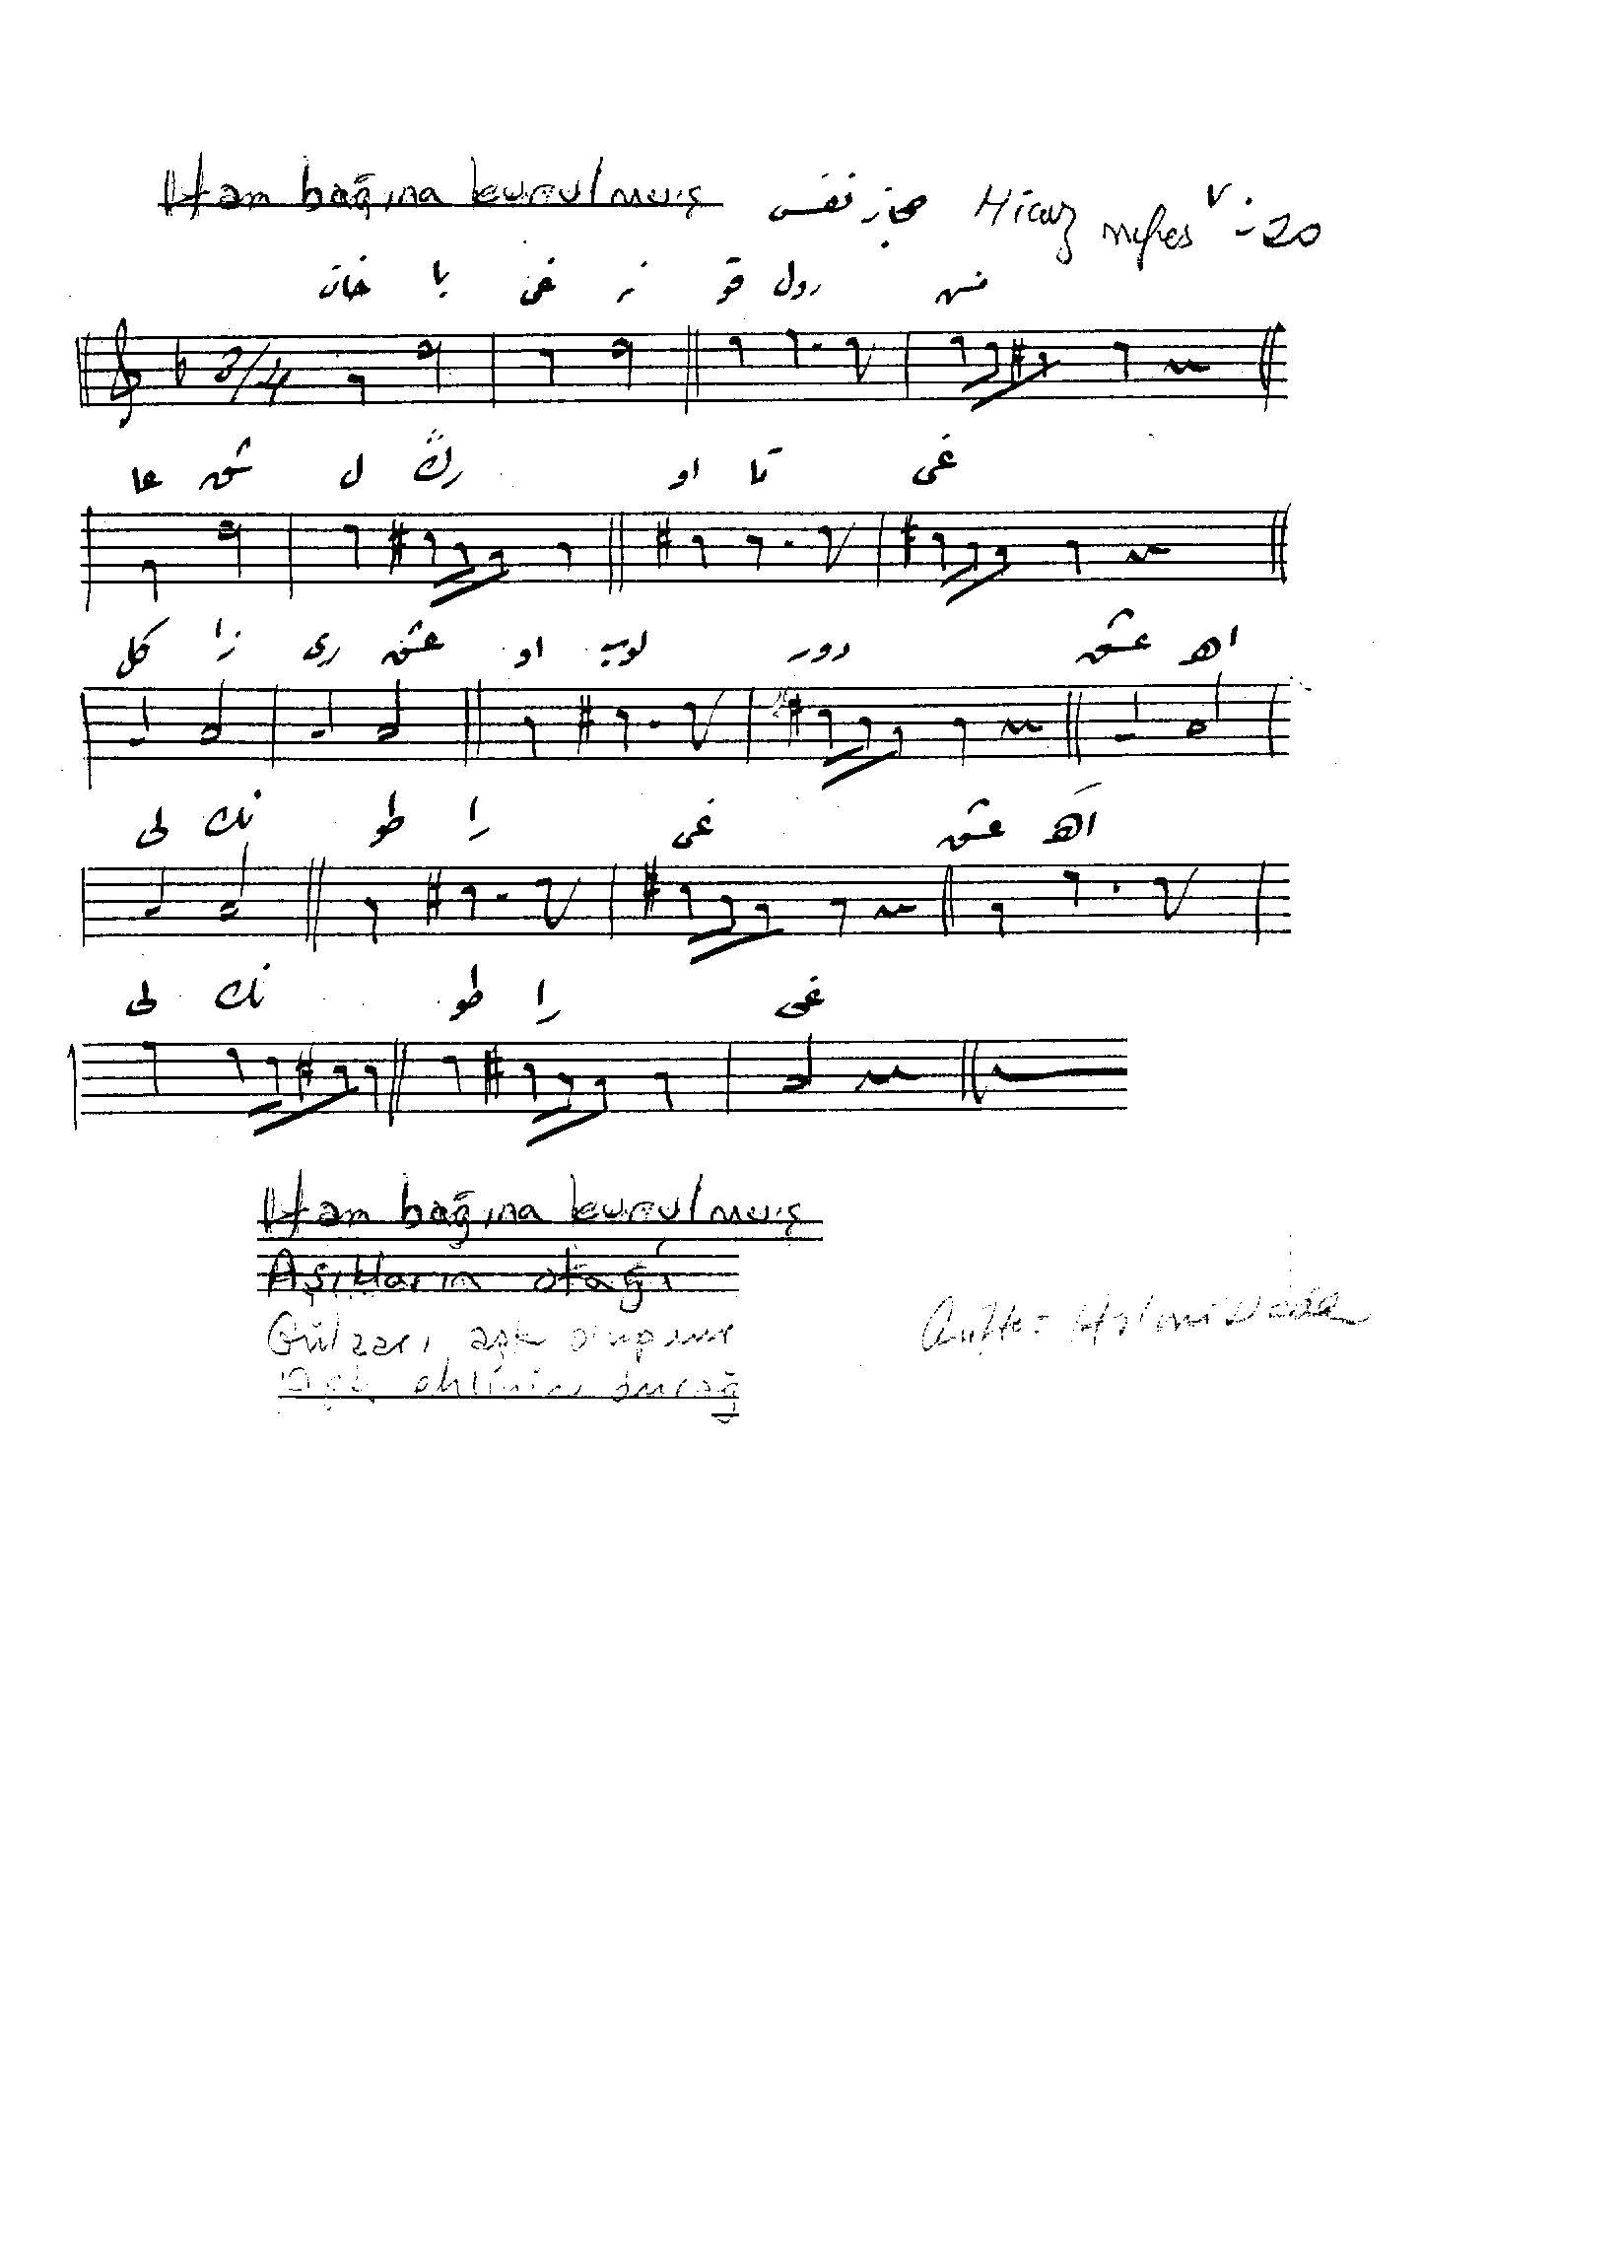 Han bağına kurulmuş حجاز نفس Hicaz nefes V-20
خان با غی نه قو رول مش
3/4
عا شق ل رڭ او تا غی
كل زا ری عشق او لوب دور عشق اهـ
لی نك طو را غی عشق اهـ
لی نك طو را غی
Han bağına kurulmuş
Aşıkların otağı
Gülzarı aşk olupdur
Aşk ehlinin durağı
Güfte: